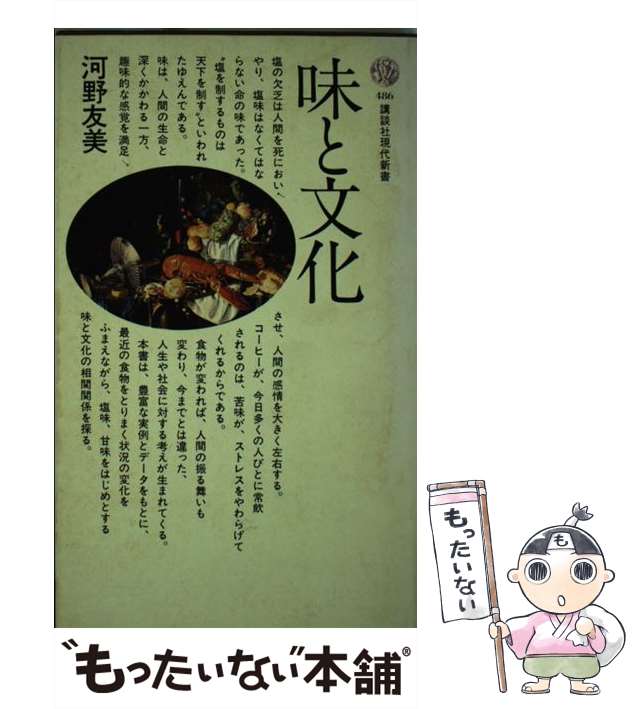 486
講談社現代新書
味と文化
河野友美
塩の欠乏は人間を死においし
やり、塩味はなくてはな
らない命の味であった。
“塩を制するものは
天下を制す”といわれ
たゆえんである。
味は、人間の生命と
深くかかわる一方、
趣味的な感覚を満足
させ、人間の感情を大きく左右する。
コーヒーが、今日多くの人びとに常飲
されるのは、苦味が、ストレスをやわらげて
くれるからである。
食物が変われば、人間の振る舞いも
変わり、今までとは違った、
人生や社会に対する考えが生まれてくる。
本書は、豊富な実例とデータをもとに、
最近の食物をとりまく状況の変化を
ふまえながら、塩味、甘味をはじめとする
味と文化の相関関係を探る。
もったいない
“もったいない”本舗®